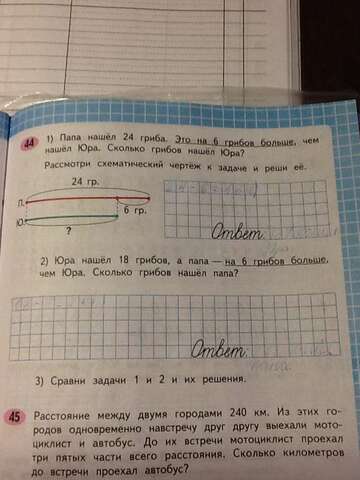 44
1) Папа нашёл 24 гриба. Это на 6 грибов больше, чем
нашёл Юра. Сколько грибов нашёл Юра?
Рассмотри схематический чертёж к задаче и реши её.
24 гр.
П.
6 гр.
Ю.
?
Ответ:
2) Юра нашёл 18 грибов, а папа — на 6 грибов больше,
чем Юра. Сколько грибов нашёл папа?
Ответ:
3) Сравни задачи 1 и 2 и их решения.
45
Расстояние между двумя городами 240 км. Из этих го-
родов одновременно навстречу друг другу выехали мото-
циклист и автобус. До их встречи мотоциклист проехал
три пятых части всего расстояния. Сколько километров
до встречи проехал автобус?